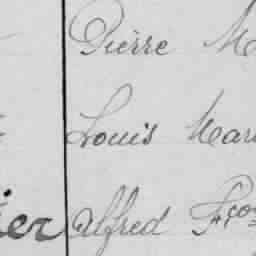 Pierre M
Louis Mari
ier Alfred Fçois